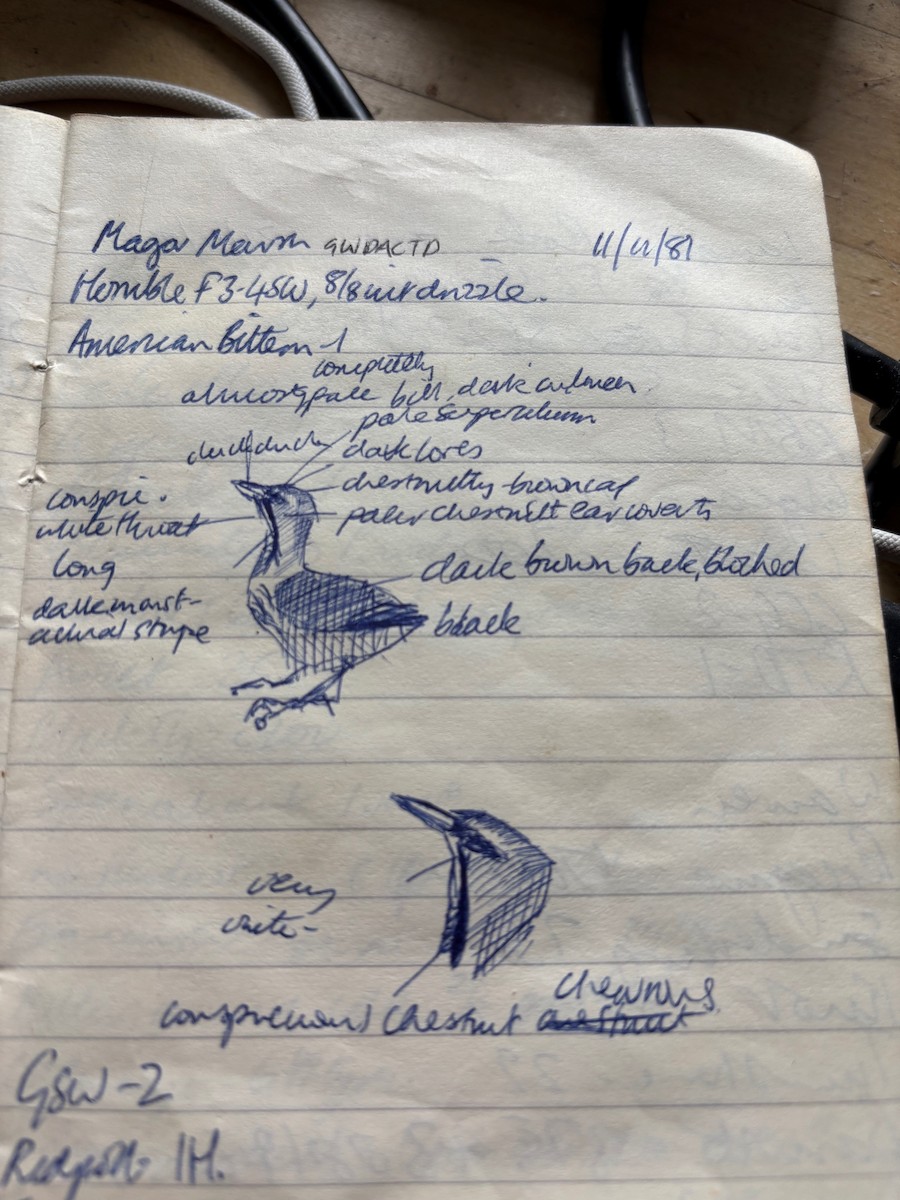 Magor Marsh GWDACTD 11/11/81
Horrible F3-4SW, 8/8 drizzle.
American Bittern - 1
completely
almost pale bill, dark culmen.
pale supercilium
dark lores
conspic.
chestnutty brown cap
white throat
paler chestnutt ear coverts
long
dark brown back, blotched
dark moust-
achial stripe
black
very
white-
chevrons
conspicuous chestnut chestnut
GSW-2
Redpoll 1H.